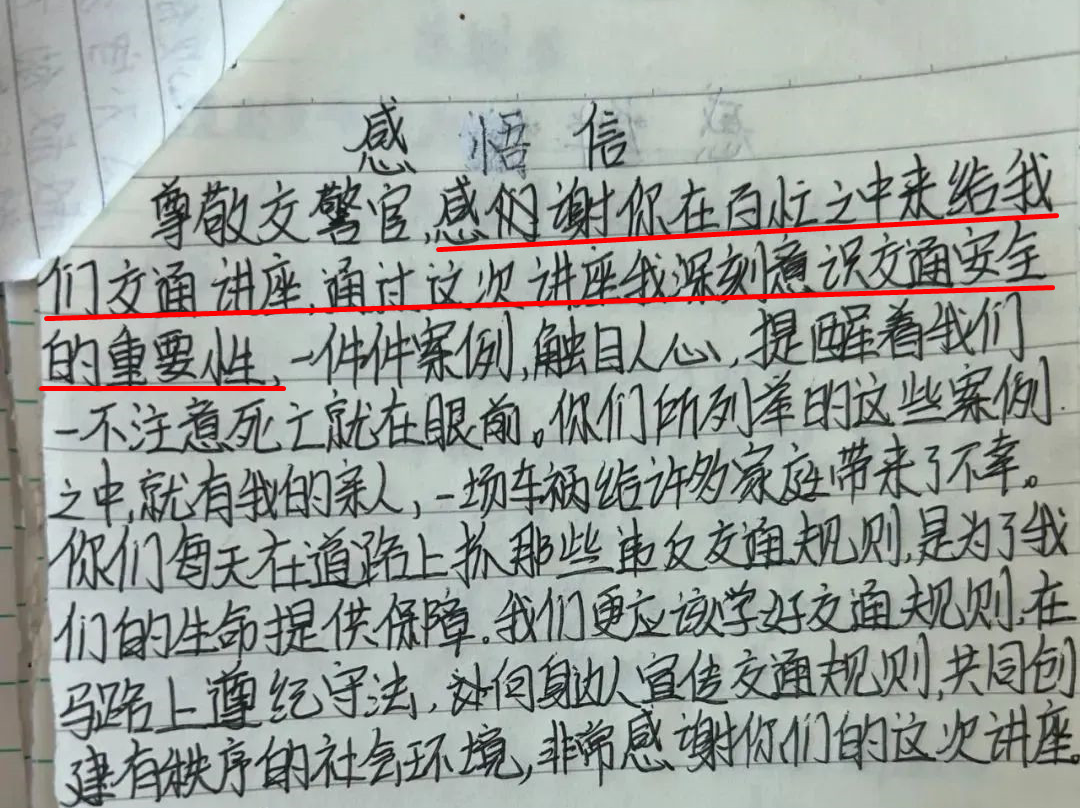 感 悟 信
尊敬交警官,感们谢你在百忙之中来给我
们交通讲座,通过这次讲座我深刻意识交通安全
的重要性,一件件案例,触目人心,提醒着我们
一不注意死亡就在眼前。你们所列举的这些案例
之中,就有我的亲人,一场车祸给许多家庭带来了不幸。
你们每天在道路上抓那些违反交通规则,是为了我
们的生命提供保障。我们更应该学好交通规则,在
马路上遵纪守法,向身边人宣传交通规则,共同创
建有秩序的社会环境,非常感谢你们的这次讲座。